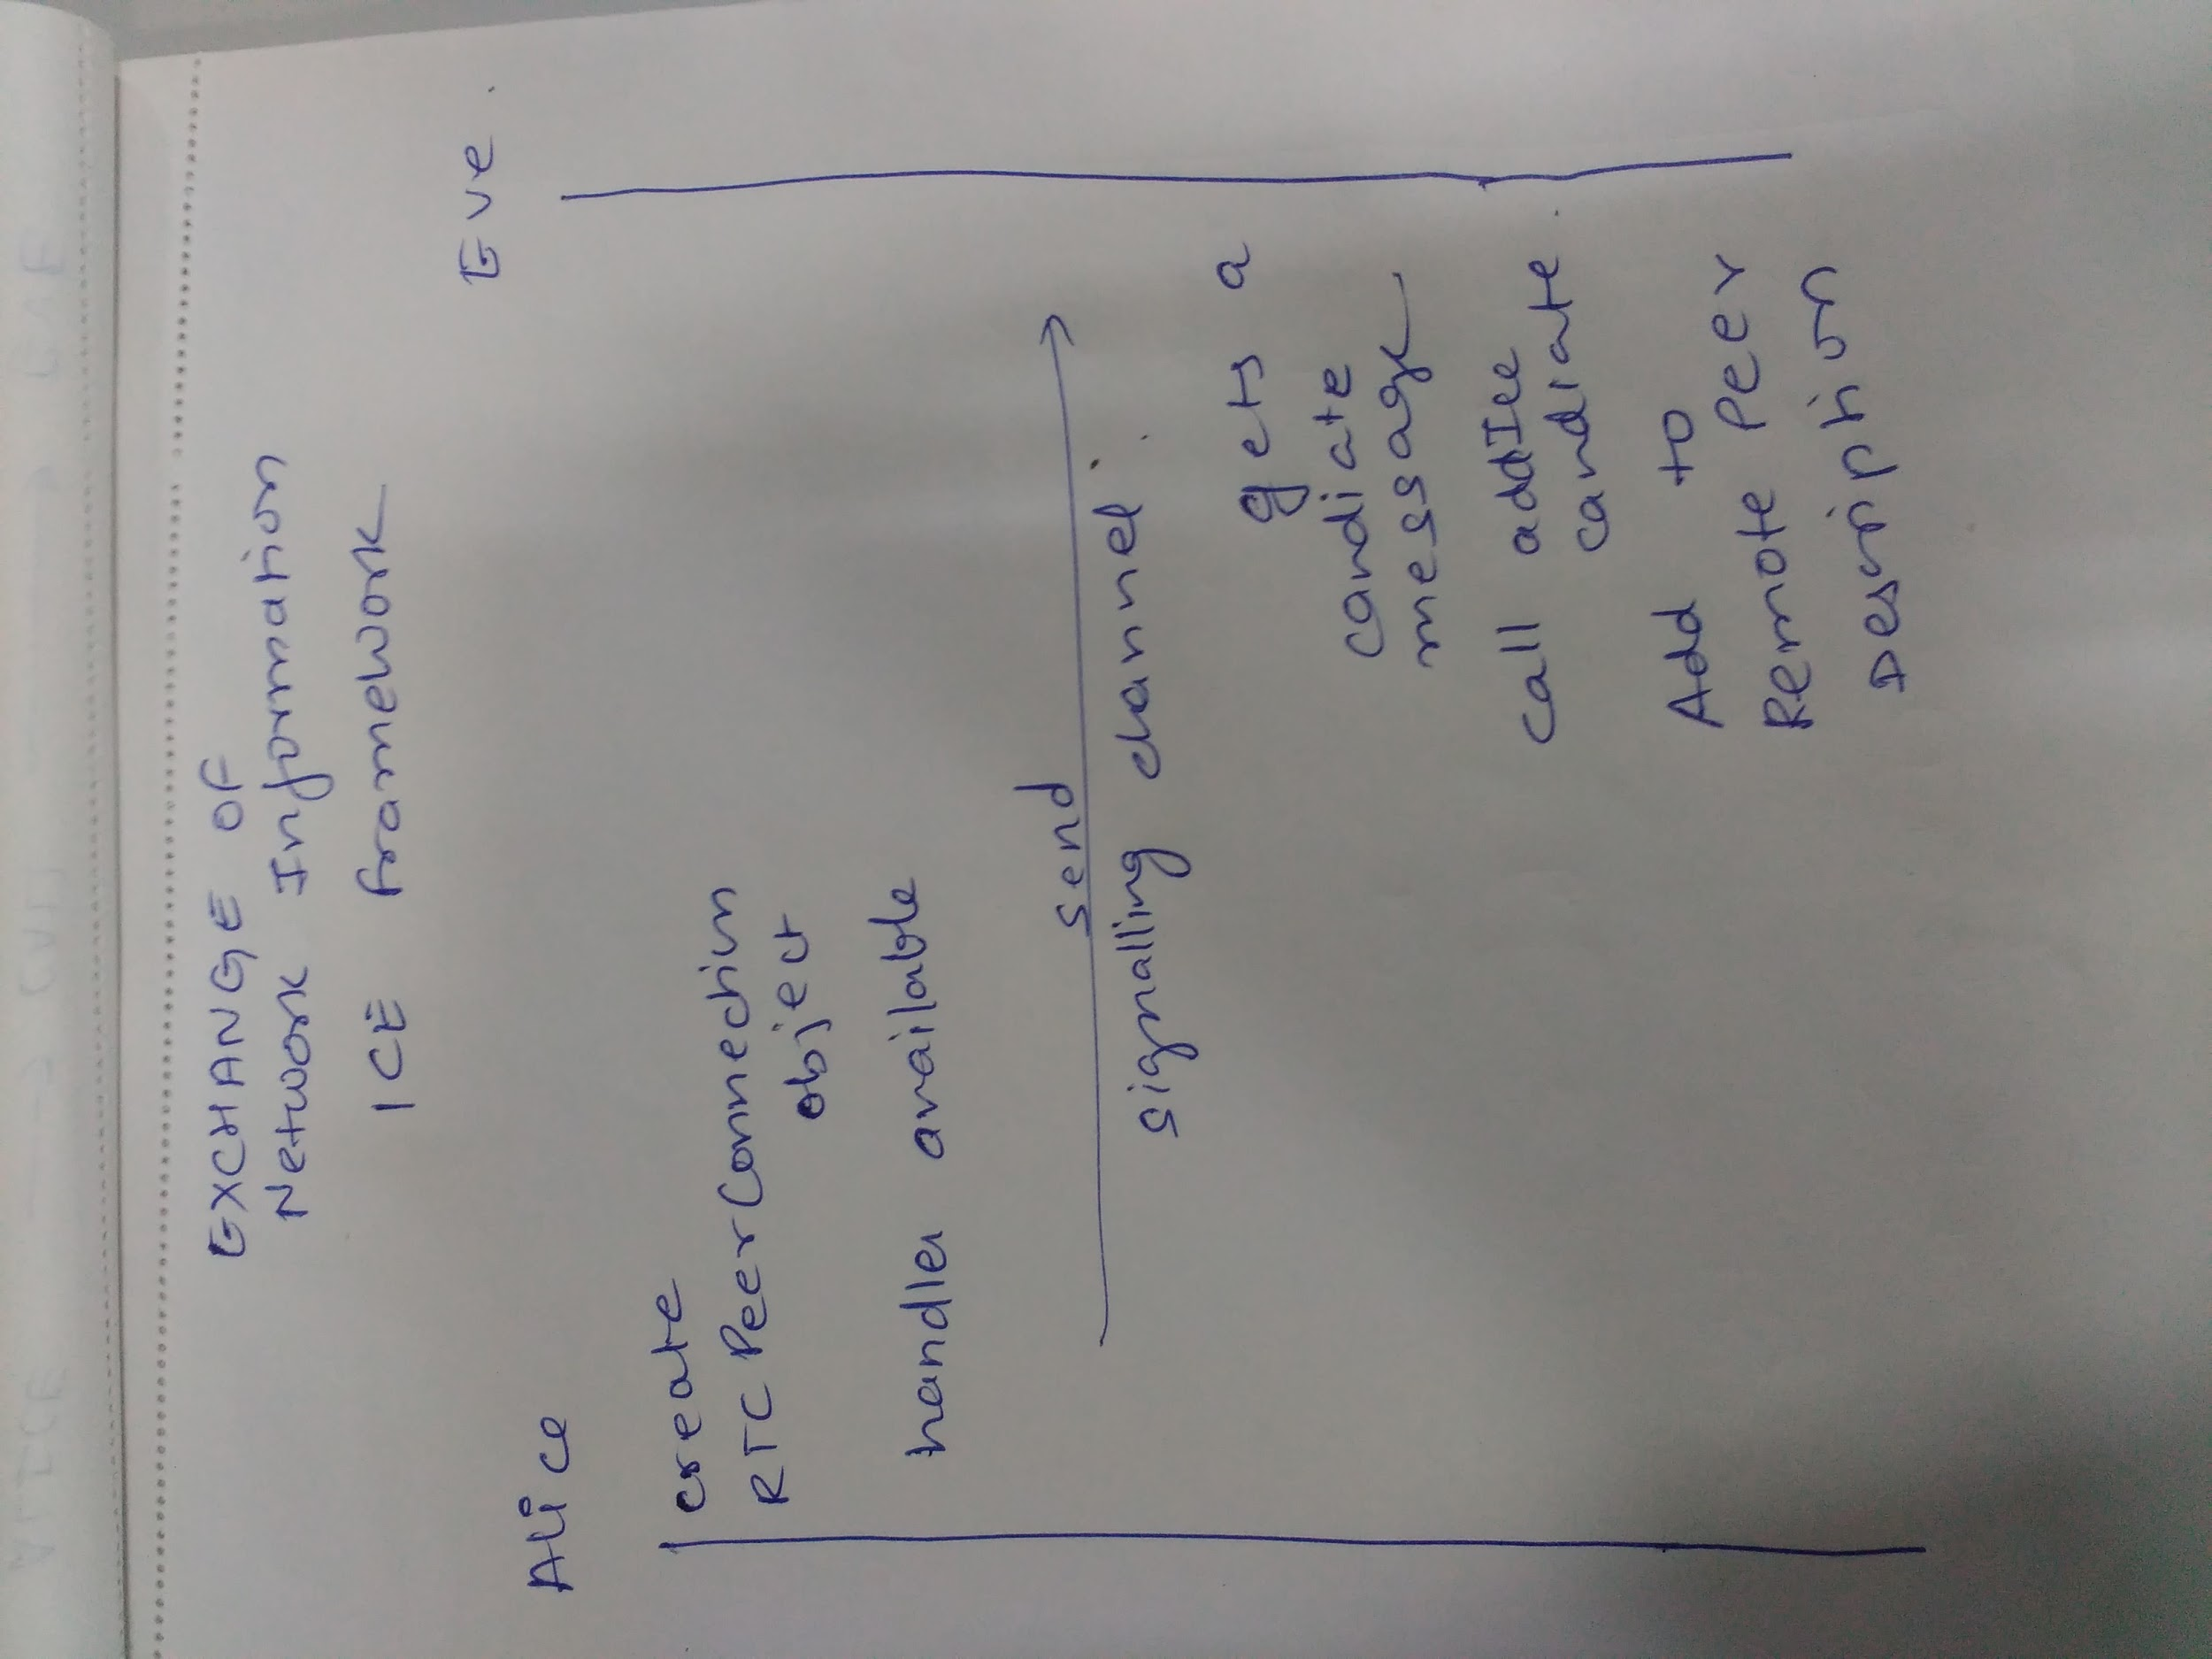 EXCHANGE OF
Network Information
ICE framework
Alice
Eve
create
RTC PeerConnection
object
handler available
send
signalling channel
gets a
candiate
message
call addIce
candiate
Add to
Remote Peer
Description